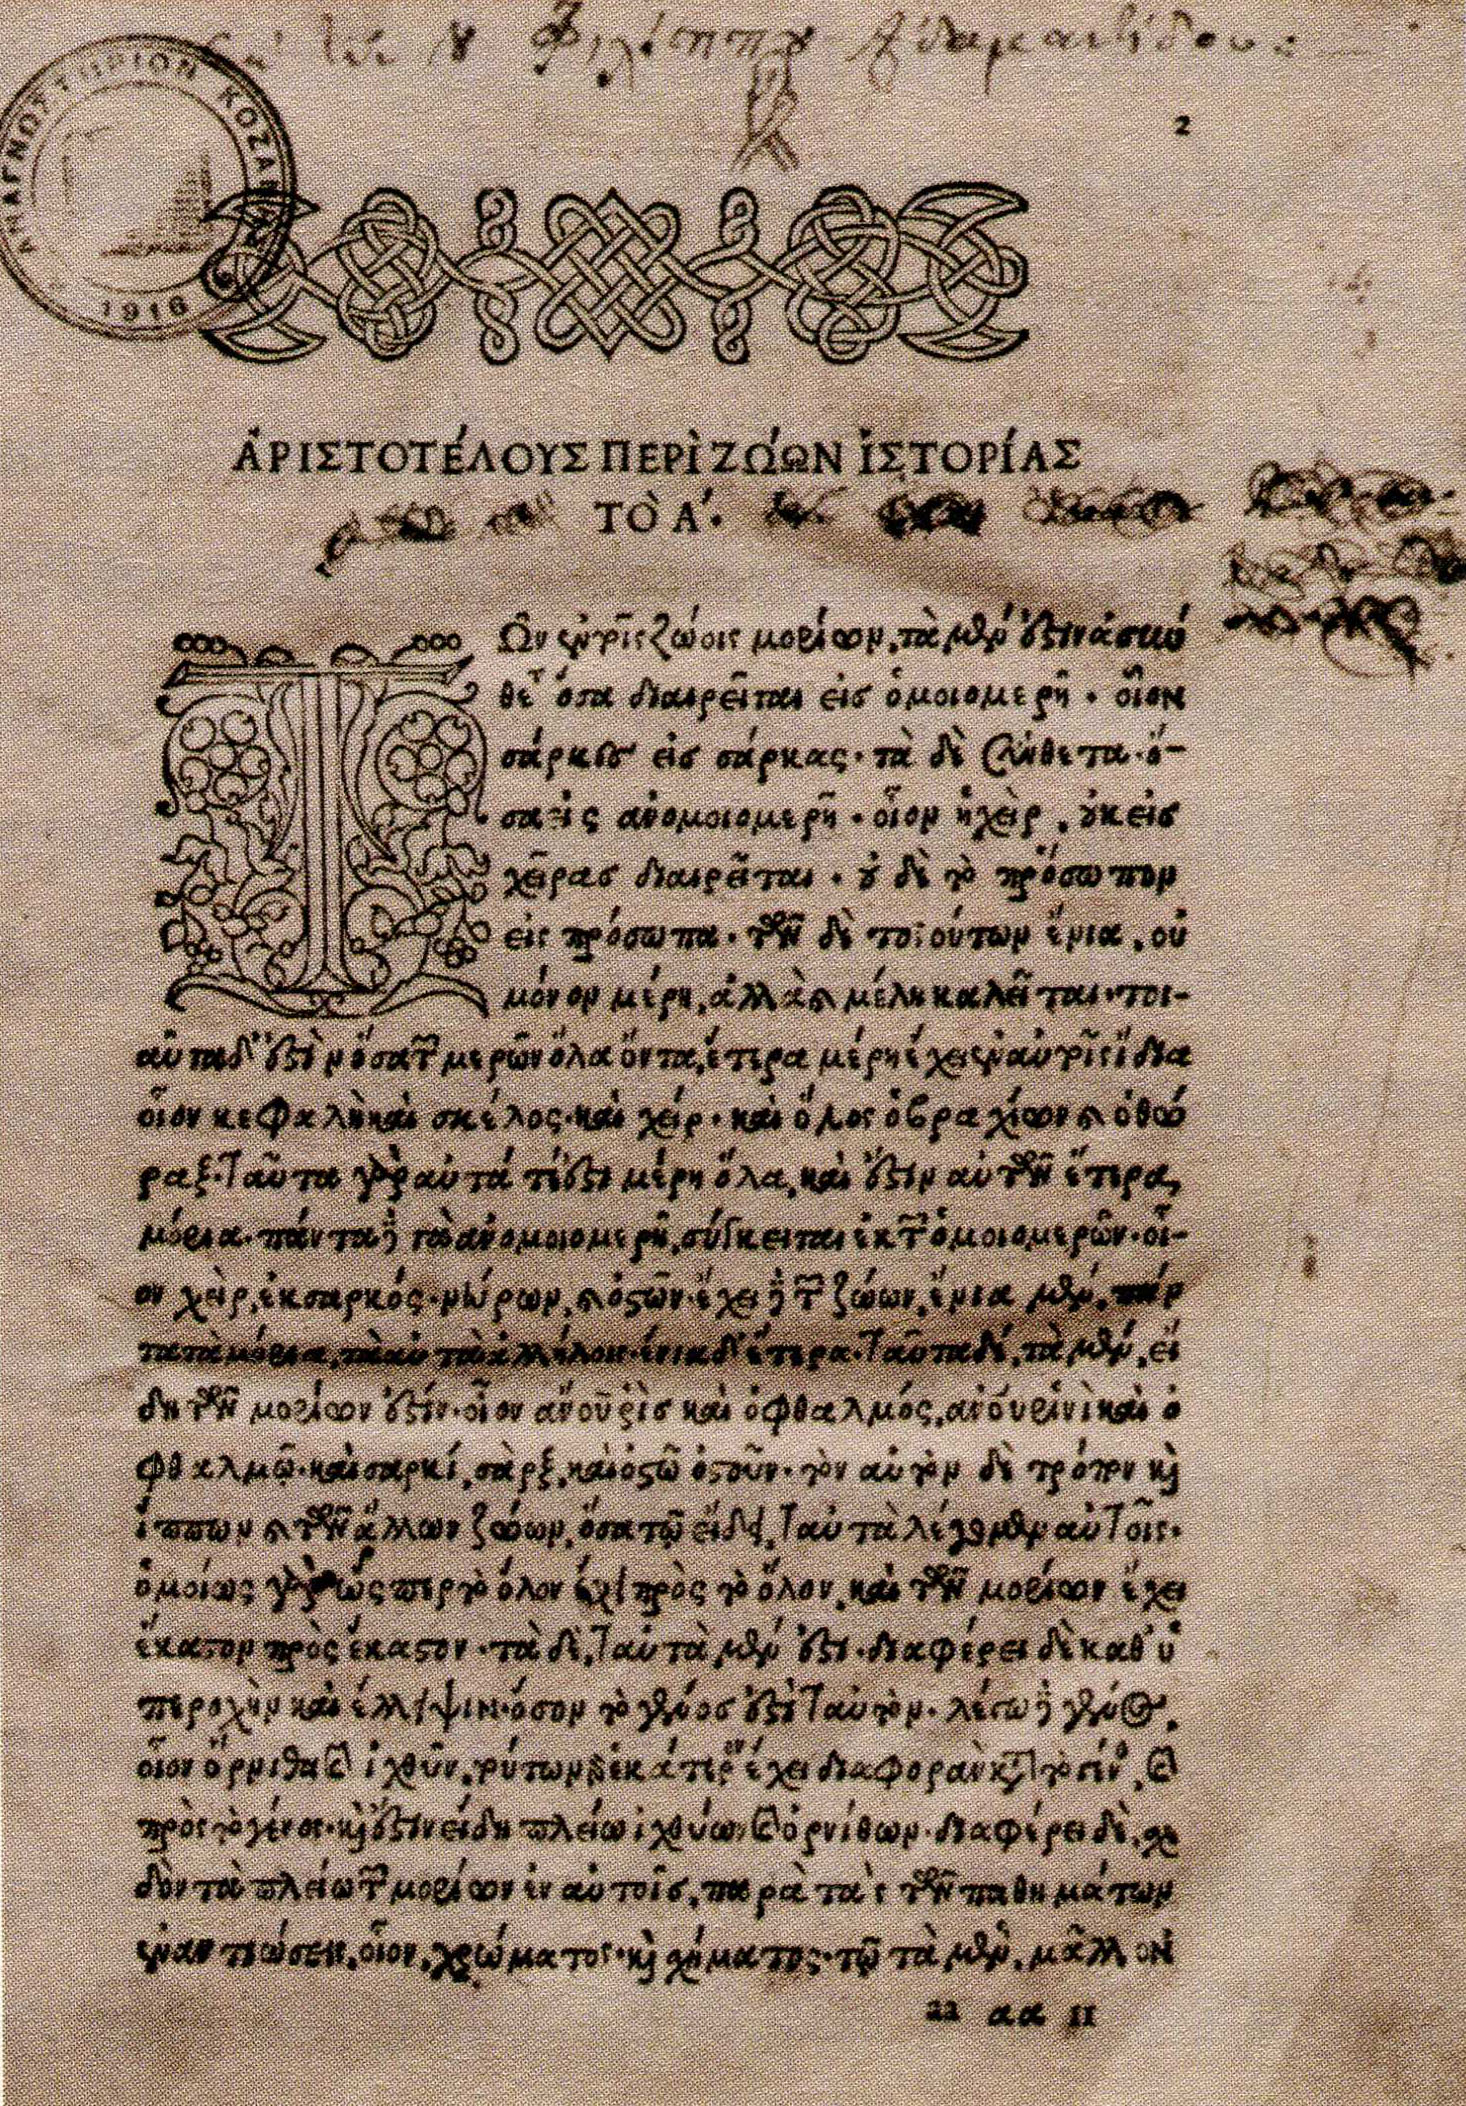 ΑΝΑΓΝΩΣΤΗΡΙΟΝ ΚΟΖΑΝΗΣ
1916
Φιλίππου
2
ἈΡΙΣΤΟΤΈΛΟΥΣ ΠΕΡῚ ΖΏΩΝ ἹΣΤΟΡΊΑΣ
ΤῸ Α΄.
Τ
Ων ἐν τοῖς ζώοις μορίων, τὰ μὲν ὅστιν ἀσύν
θετ' ὅσα διαιρεῖται εἰς ὁμοιομερῆ · οἷον
σάρκες εἰς σάρκας · τὰ δὲ σύνθετα · ὅ-
σα εἰς ἀνομοιομερῆ · οἷον ἡ χεὶρ, οὐκ εἰς
χεῖρας διαιρεῖται · οὐ δὲ τὸ πρόσωπον
εἰς πρόσωπα · τῶν δὲ τοιούτων ἔνια, οὐ
μόνον μέρη, ἀλλὰ καὶ μέλη καλεῖται · τοι-
αῦτα δ' ἐστὶν ὅσα τῶν μερῶν ὅλα ὄντα, ἕτερα μέρη ἔχει ἐν αὑτοῖς ἴδια
οἷον κεφαλὴ καὶ σκέλος · καὶ χείρ · καὶ ὅλος ὁ βραχίων καὶ ὁ θώ
ραξ · Ταῦτα γὰρ αὐτά τέ ἐστι μέρη ὅλα, καὶ ἔστιν αὐτῶν ἕτερα
μόρια · πάντα δὲ τὰ ἀνομοιομερῆ, σύγκειται ἐκ τῶν ὁμοιομερῶν · οἷ-
ον χεὶρ, ἐκ σαρκός · νεύρων, καὶ ὀστῶν · ἔχει δὲ τῶν ζώων, ἔνια μὲν, πάν
τα τὰ μόρια, τὰ αὐτὰ ἀλλήλοις · ἔνια δ' ἕτερα · Ταῦτα δὲ, τὰ μὲν, εἴ
δη τῶν μορίων ἐστίν · οἷον ἀν̅ο̅υ̅ ῥὶς καὶ ὀφθαλμός, ἀν̅ο̅υ̅ ῥινὶ καὶ ὀ
φθαλμῷ · καὶ σαρκί, σὰρξ, καὶ ὀστῷ ὀστοῦν · τὸν αὐτὸν δὲ τρόπον καὶ
ἵππων καὶ τῶν ἄλλων ζώων, ὅσα τῷ εἴδει, ταὐτὰ λέγομεν αὑτοῖς ·
ὁμοίως γὰρ ὥς περ τὸ ὅλον ἔχει πρὸς τὸ ὅλον, καὶ τῶν μορίων ἔχει
ἕκαστον πρὸς ἕκαστον · τὰ δὲ, ταὐτὰ μὲν ἐστι · διαφέρει δὲ καθ' ὑ
περοχὴν καὶ ἔλλειψιν · ὅσον τὸ γένος ἐστὶ ταὐτὸν · λέγω δὲ γένος,
οἷον ὄρνιθα καὶ ἰχθῦν, τούτων γὰρ ἑκάτερον ἔχει διαφορὰν κατὰ τὸ γέν, καὶ
πρὸς τὸ γένος · καὶ ἔστιν εἴδη πλείω ἰχθύων καὶ ὀρνίθων · διαφέρει δὲ, σχε
δὸν τὰ πλείω τῶν μορίων ἐν αὐτοῖς, παρὰ τὰς τῶν παθημάτων
ἐναντιώσεις, οἷον, χρώματος · καὶ σχήματος · τῷ τὰ μὲν, μᾶλλον
aa αα II